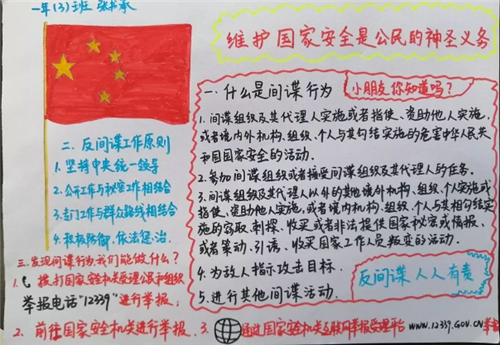 一年(3)班 张书承
维护国家安全是公民的神圣义务
一.什么是间谍行为
小朋友你知道吗?
1.间谍组织及其代理人实施或者指使、资助他人实施,
或者境内外机构、组织、个人与其勾结实施的危害中华人民共
和国国家安全的活动.
2.参加间谍组织或者接受间谍组织及其代理人的任务.
3.间谍组织及其代理人以外的其他境外机构、组织、个人实施或
指使、资助他人实施,或者境内机构、组织、个人与其相勾结实
施的窃取、刺探、收买或者非法提供国家秘密或情报,
或者策动、引诱、收买国家工作人员叛变的活动.
4.为敌人指示攻击目标.
5.进行其他间谍活动.
反间谍 人人有责
二.反间谍工作原则
1.坚持中央统一领导
2.公开工作与秘密工作相结合
3.专门工作与群众路线相结合
4.积极防御、依法惩治.
三.发现间谍行为我们能做什么?
1. 拨打国家安全机关受理公民和组织
举报电话"12339"进行举报.
2. 前往国家安全机关进行举报.
3. 通过国家安全机关互联网举报受理平台 WWW.12339.GOV.CN举报